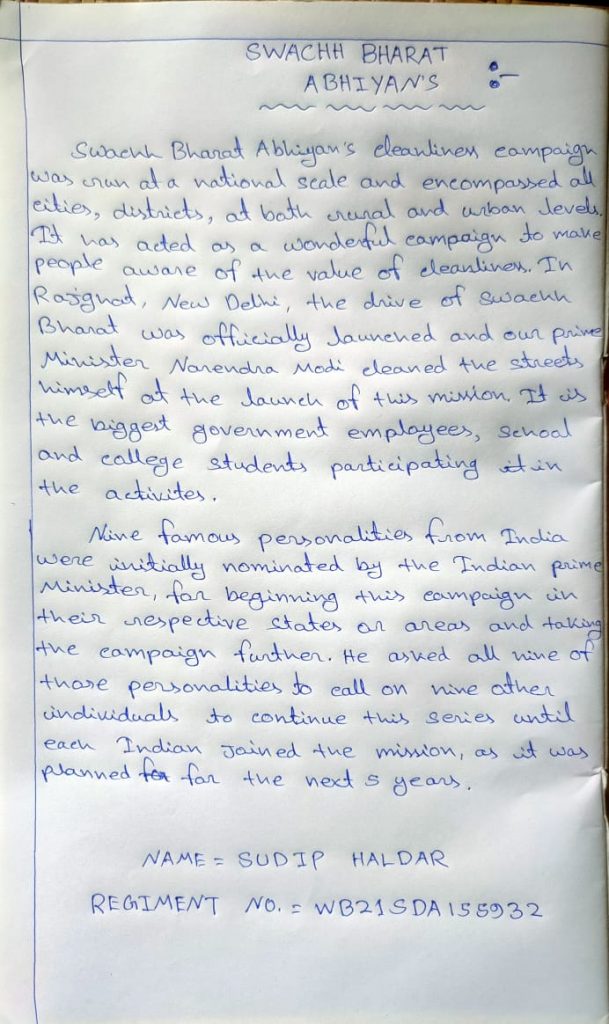 SWACHH BHARAT
ABHIYAN'S :-
Swachh Bharat Abhiyan's cleanliness campaign
was run at a national scale and encompassed all
cities, districts, at both rural and urban levels.
It has acted as a wonderful campaign to make
people aware of the value of cleanliness. In
Rajghat, New Delhi, the drive of Swachh
Bharat was officially launched and our prime
Minister Narendra Modi cleaned the streets
himself at the launch of this mission. It is
the biggest government employees, school
and college students participating it in
the activites.
Nine famous personalities from India
were initially nominated by the Indian prime
Minister, for beginning this campaign in
their respective states or areas and taking
the campaign further. He asked all nine of
those personalities to call on nine other
individuals to continue this series until
each Indian Joined the mission, as it was
planned for for the next 5 years.
NAME = SUDIP HALDAR
REGIMENT NO. = WB21SDA155932